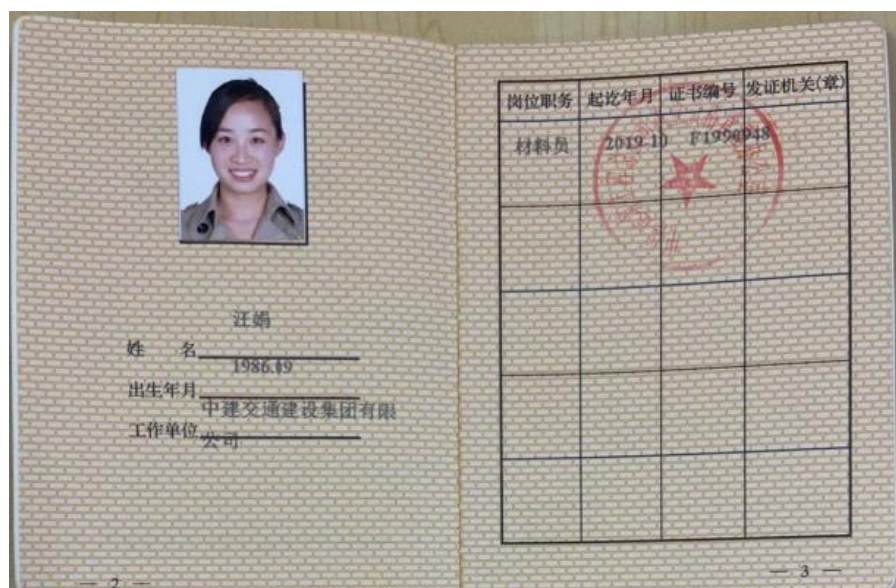 汪娟
姓 名
1986.09
出生年月
中建交通建设集团有限
工作单位
公司
— 2 —
岗位职务 起讫年月 证书编号 发证机关(章)
材料员 2019.10 F1990948
— 3 —